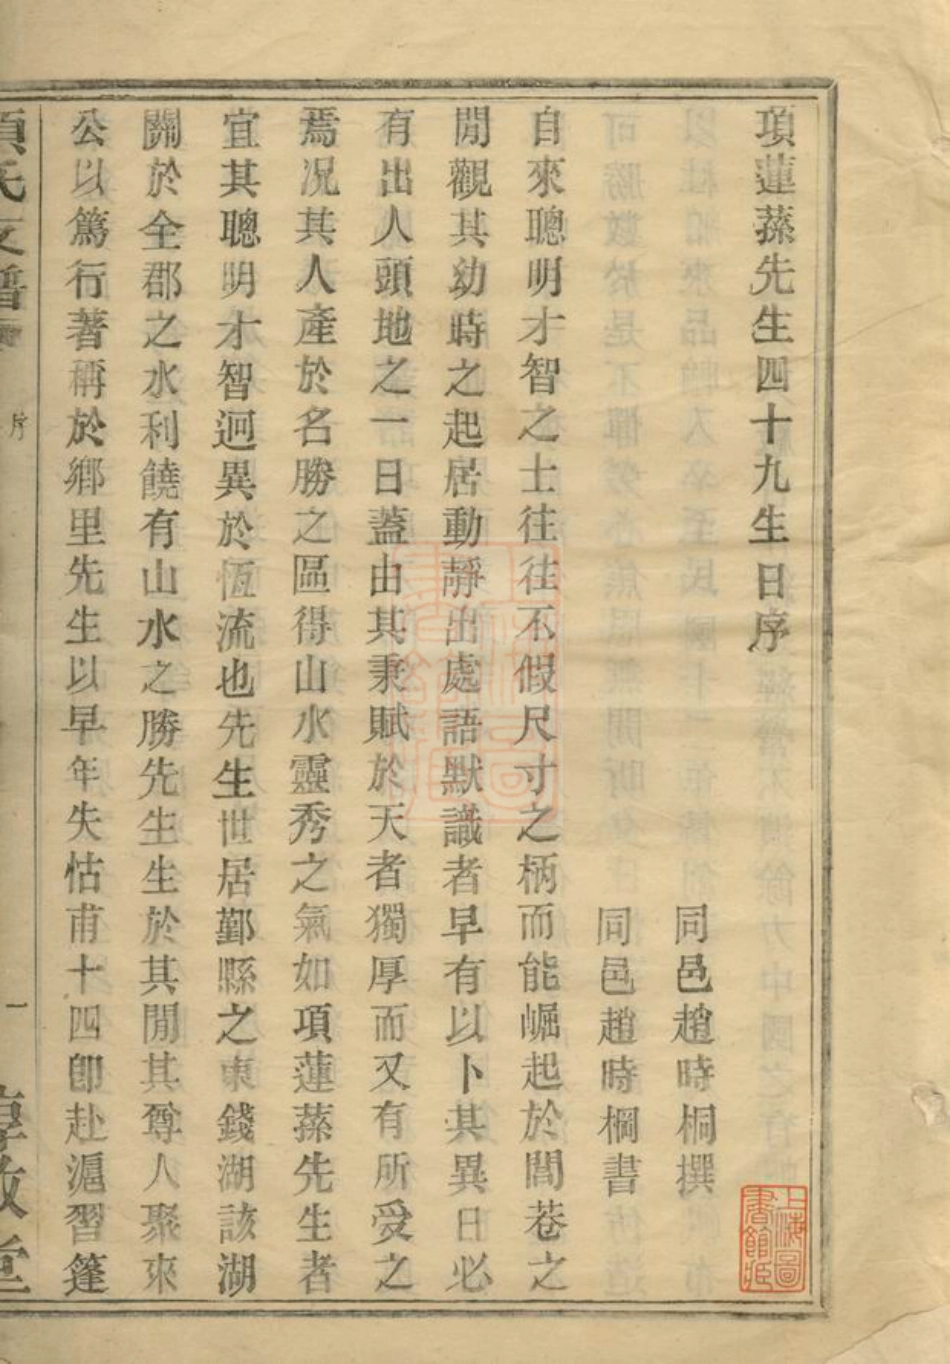 項蓮蓀先生四十九生日序
同邑趙時桐撰
同邑趙時棡書
自來聰明才智之士往往不假尺寸之柄而能崛起於閭巷之
閒觀其幼時之起居動靜出處語默識者早有以卜其異日必
有出人頭地之一日蓋由其秉賦於天者獨厚而又有所受之
焉况其人產於名勝之區得山水靈秀之氣如項蓮蓀先生者
宜其聰明才智迥異於恆流也先生世居鄞縣之東錢湖該湖
關於全郡之水利饒有山水之勝先生生於其閒其尊人聚來
公以篤行著稱於鄉里先生以早年失怙甫十四卽赴滬習篷
項氏支譜
序
一
敦堂
上海圖書館藏